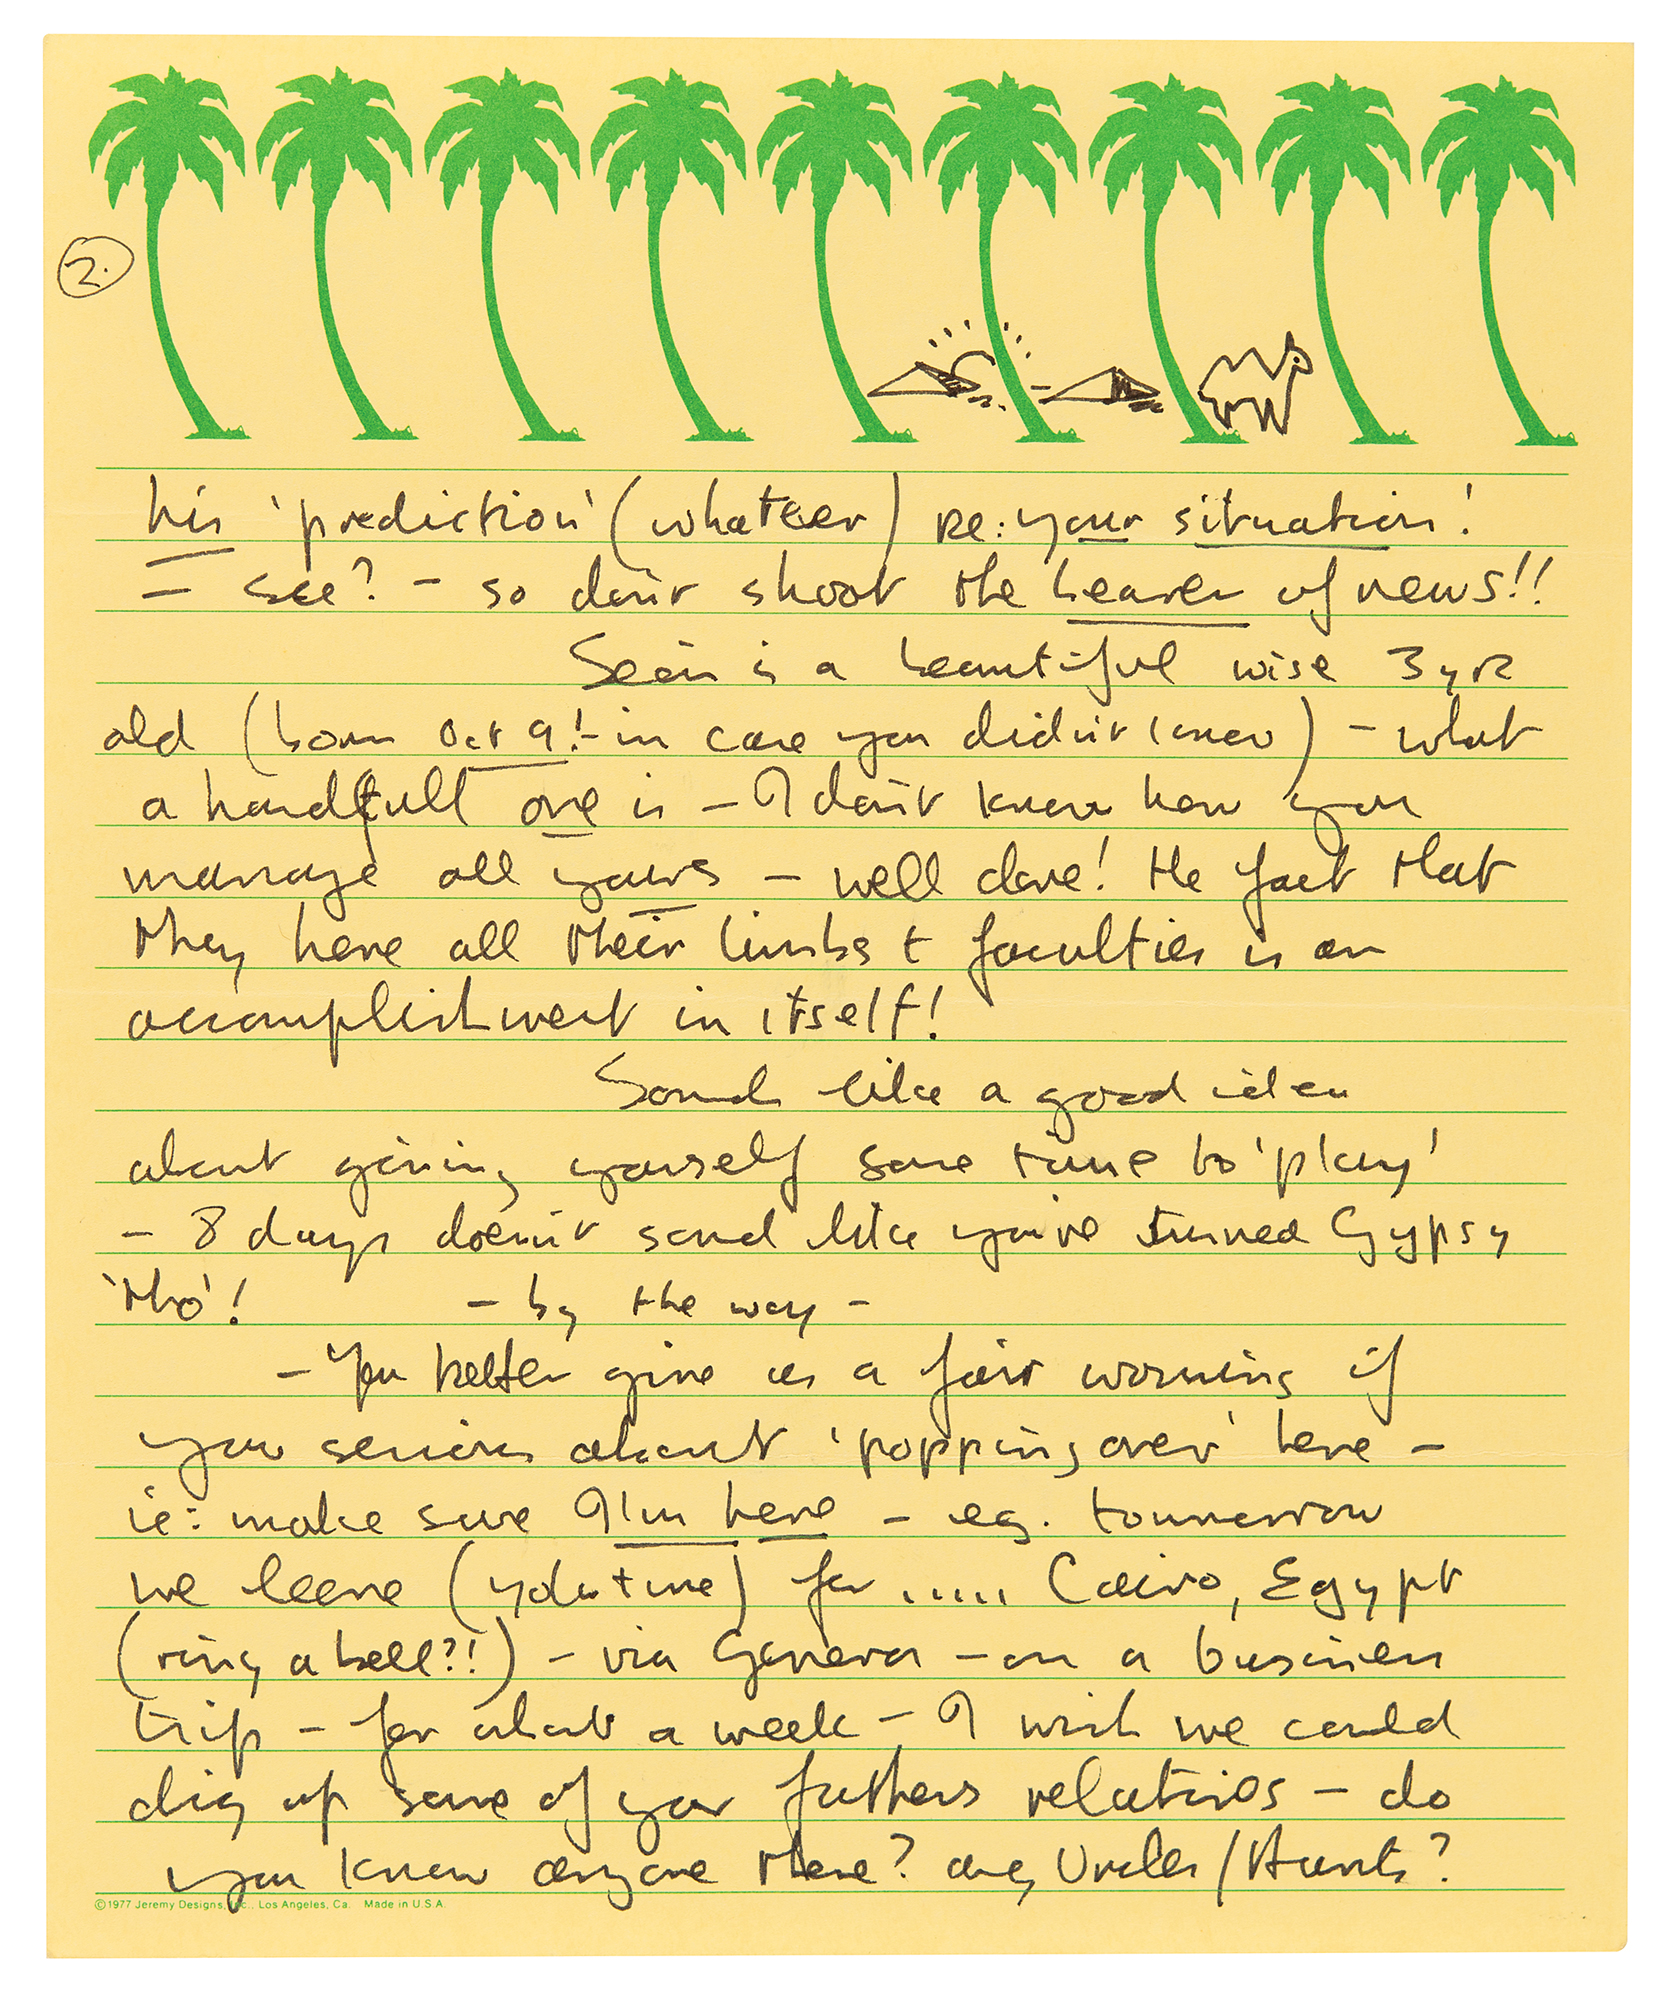 2.
his 'prediction' (whatever) RE: your situation!
= see? - so don't shoot the bearer of news!!
Sean is a beautiful wise 3 yr
old (born Oct 9! - in case you didn't know) - what
a handfull one is - I don't know how you
manage all yours - well done! the fact that
they have all their limbs + faculties is an
accomplishment in itself!
Sounds like a good idea
about giving yourself some time to 'play'
- 8 days doesn't sound like you've turned Gypsy
'tho'! - by the way -
- You better give us a fair warning if
your serious about 'popping over' here -
ie: make sure I'm here - eg. tommorrow
we leave (yoko + me) for ..... Cairo, Egypt
(ring a bell?!) - via Geneva - on a business
trip - for about a week - I wish we could
dig up some of your fathers relatives - do
you know anyone there? any Uncles/Aunts?
©1977 Jeremy Designs, Inc., Los Angeles, Ca. Made in U.S.A.